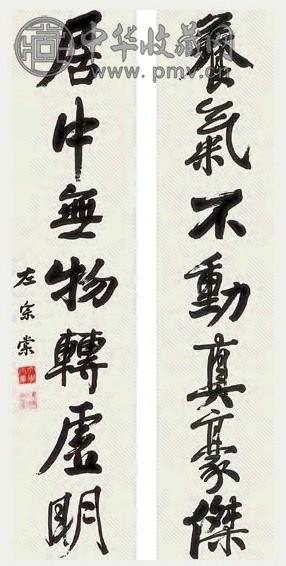 中华收藏网
www.pmv.cn
養氣不動真豪傑
居中無物轉虛明
左宗棠